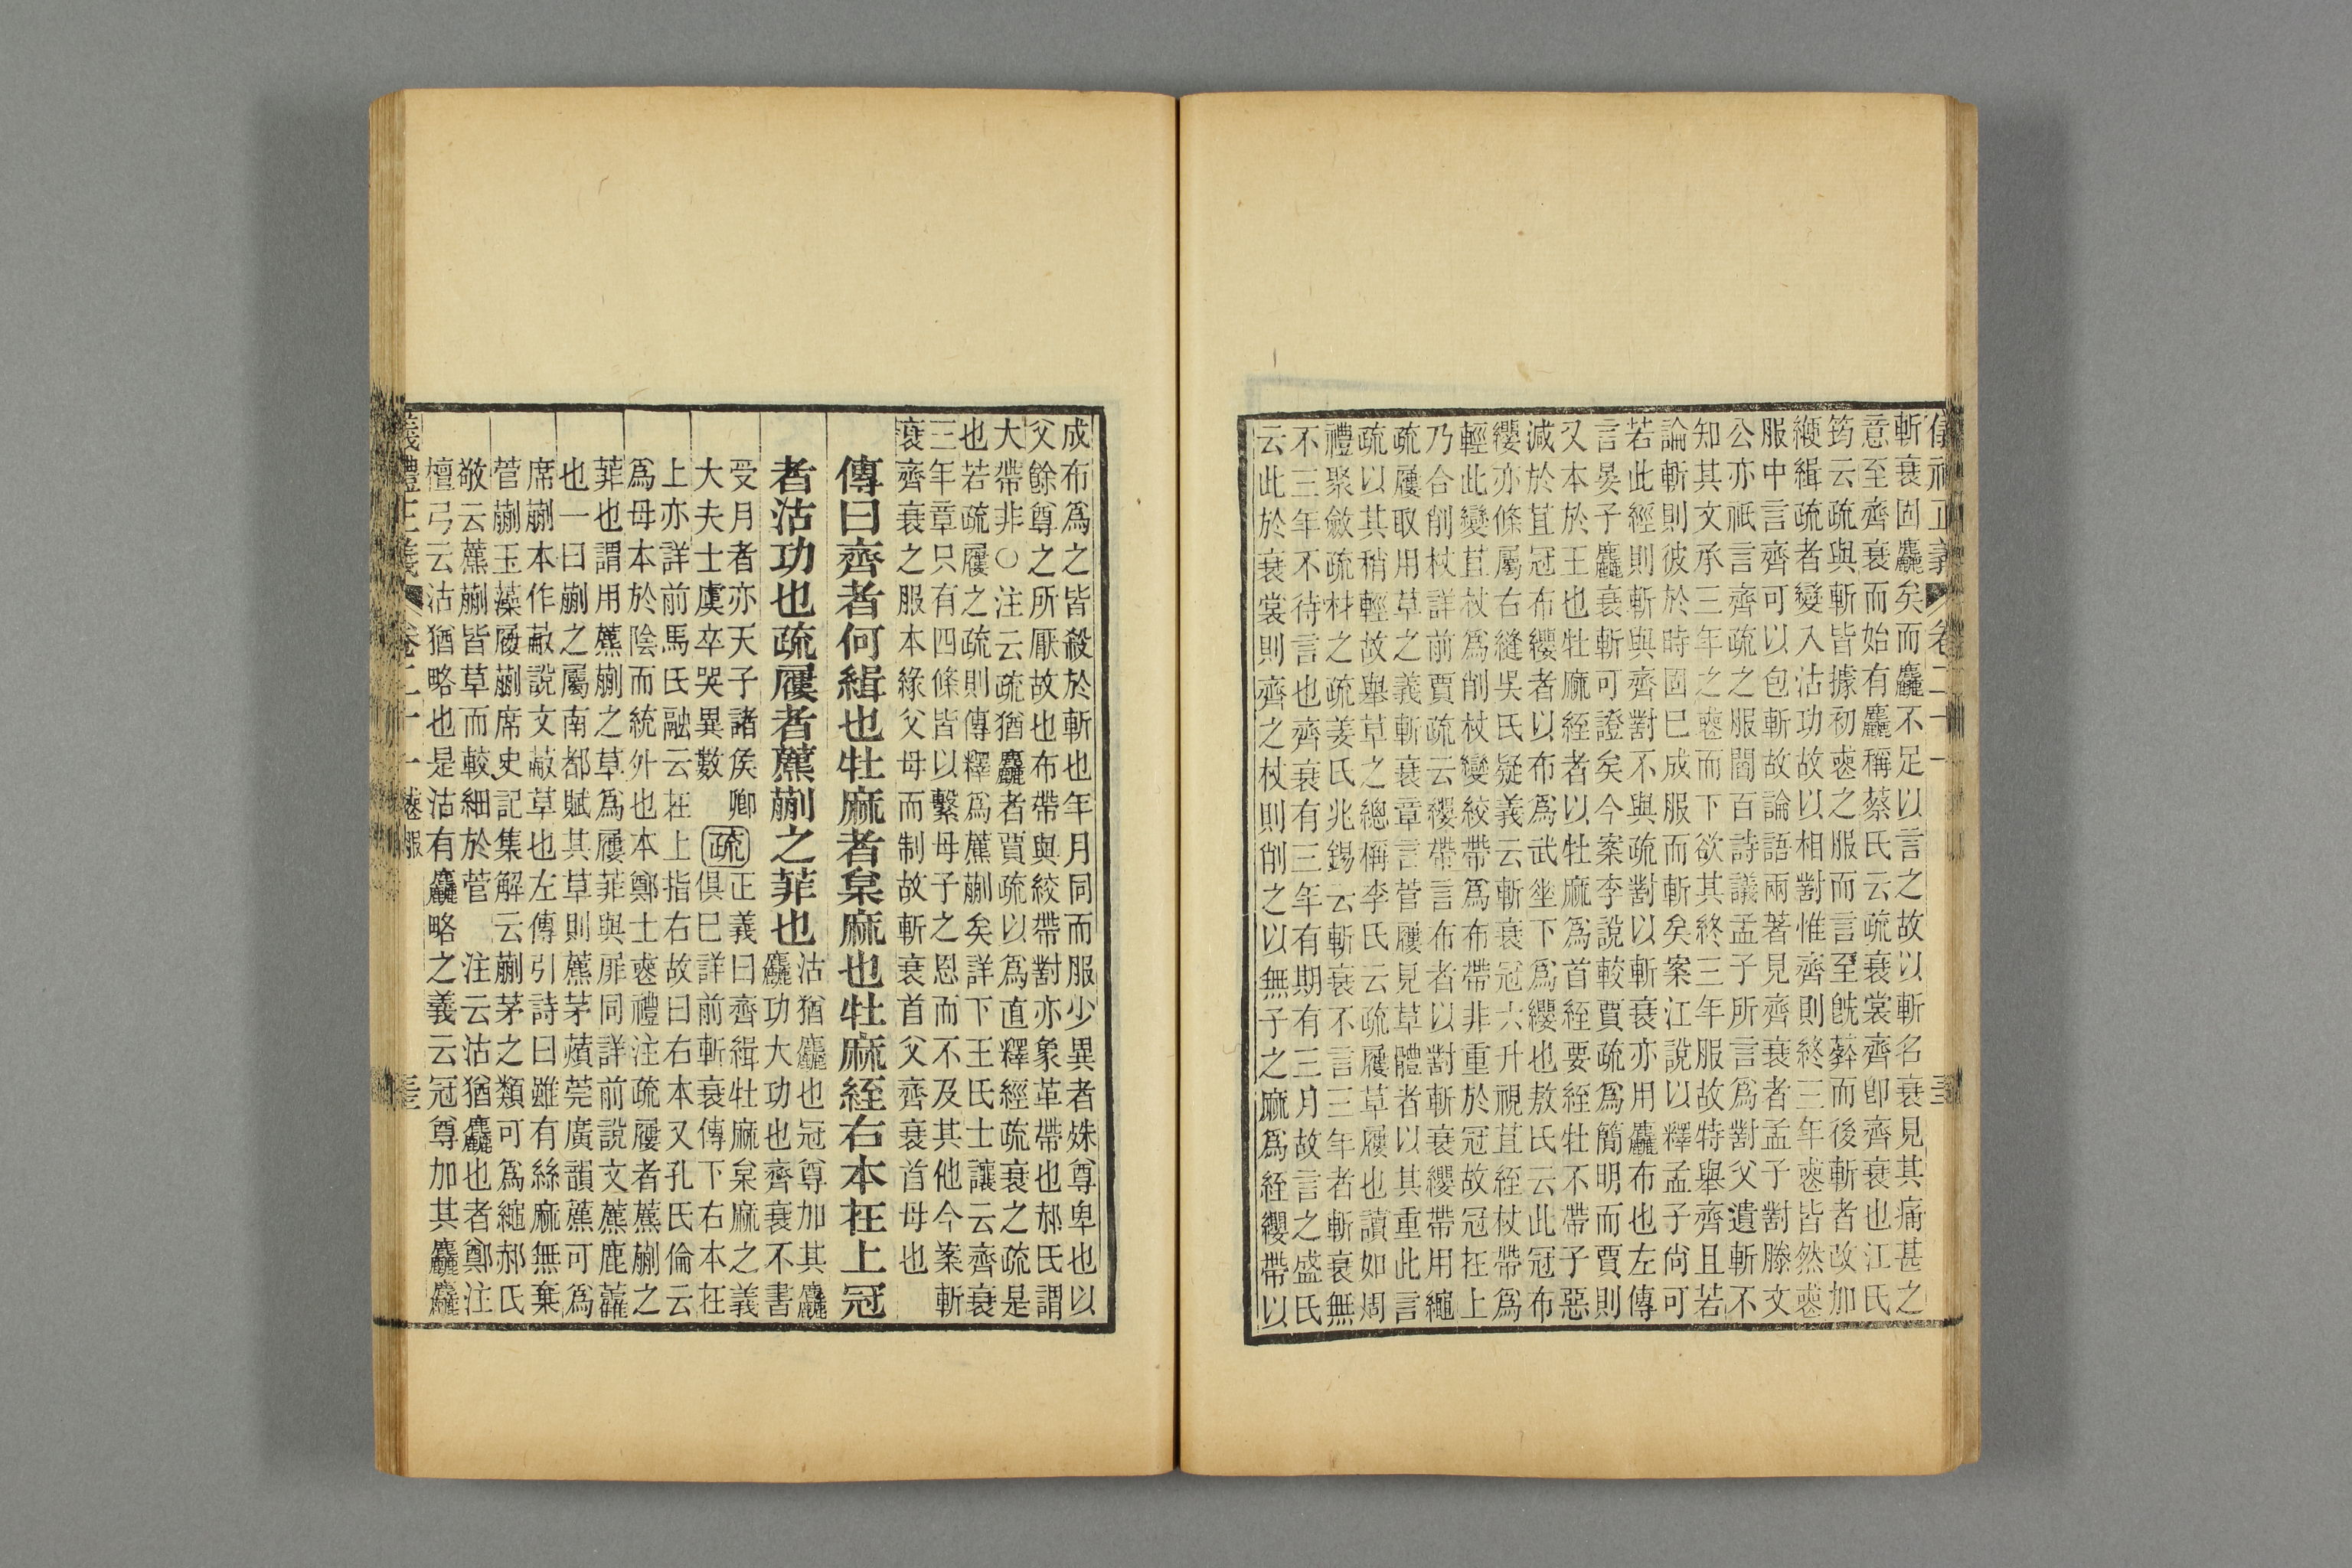 儀禮正義 卷二十一 
斬衰固麤矣而麤不足以言之故以斬名衰見其痛甚之
意至齊衰而始有麤稱蔡氏云疏衰裳齊卽齊衰也江氏
筠云疏與斬皆據初喪之服而言至旣葬而後斬者改加
緶緝疏者變入沽功故以相對惟齊則終三年喪皆然喪
服中言齊可以包斬故論語兩著見齊衰者孟子對滕文
公亦祇言齊疏之服閻百詩議孟子所言爲對父遺斬不
知其文承三年之喪而下欲其終三年服故特舉齊且若
論斬則彼於時固巳成服而斬矣案江說以釋孟子尙可
若此經則斬與齊對不與疏對以斬衰亦用麤布也左傳
言晏子麤衰斬可證矣今案李說較賈疏爲簡明而賈則
又本於王也牡麻絰者以牡麻爲首絰要絰牡不帶子惡
減於苴冠布纓者以布爲武垂下爲纓也敖氏云此冠布
纓亦條屬右縫吳氏疑義云斬衰冠六升視苴絰杖帶爲
輕此變苴杖爲削杖變絞帶爲布帶非重於冠故冠在上
乃合削杖詳前賈疏云纓帶言布者以對斬衰纓帶用繩
疏屨取用草之義斬衰章言菅屨見草體者以其重此言
疏以其稍輕故舉草之總稱李氏云疏屨草屨也讀如周
禮聚斂疏材之疏姜氏兆錫云斬衰不言三年者斬衰無
不三年不待言也齊衰有三年有期有三月故言之盛氏
云此於衰裳則齊之杖則削之以無子之麻爲絰纓帶以
成布爲之皆殺於斬也年月同而服少異者姝尊卑也以
父餘尊之所厭故也布帶與絞帶對亦象革帶也郝氏謂
大帶非○注云疏猶麤者賈疏以爲直釋經疏衰之疏是
也若疏屨之疏則傳釋爲藨蒯矣詳下王氏士讓云齊衰
三年章只有四條皆以繫母子之恩而不及其他今案斬
衰齊衰之服本緣父母而制故斬衰首父齊衰首母也
傳曰齊者何緝也牡麻者枲麻也牡麻絰右本在上冠
者沽功也疏屨者藨蒯之菲也
沽猶麤也冠尊加其麤
麤功大功也齊衰不書
受月者亦天子諸侯卿
大夫士虞卒哭異數
疏
正義曰齊緝牡麻枲麻之義
俱巳詳前斬衰傳下右本在
上亦詳前馬氏融云在上指右故曰右本又孔氏倫云
爲母本於陰而統外也本鄭士喪禮注疏屨者藨蒯之
菲也謂用藨蒯之草爲屨菲與屝同詳前說文藨鹿藿
也一曰蒯之屬南都賦其草則藨茅薠莞廣韻藨可爲
席蒯本作𦳋說文𦳋草也左傳引詩曰雖有絲麻無棄
菅蒯玉藻屨蒯席史記集解云蒯茅之類可爲繩郝氏
敬云藨蒯皆草而較細於菅　注云沽猶麤也者鄭注
檀弓云沽猶略也是沽有麤略之義云冠尊加其麤麤
儀禮正義 卷二十一 喪服